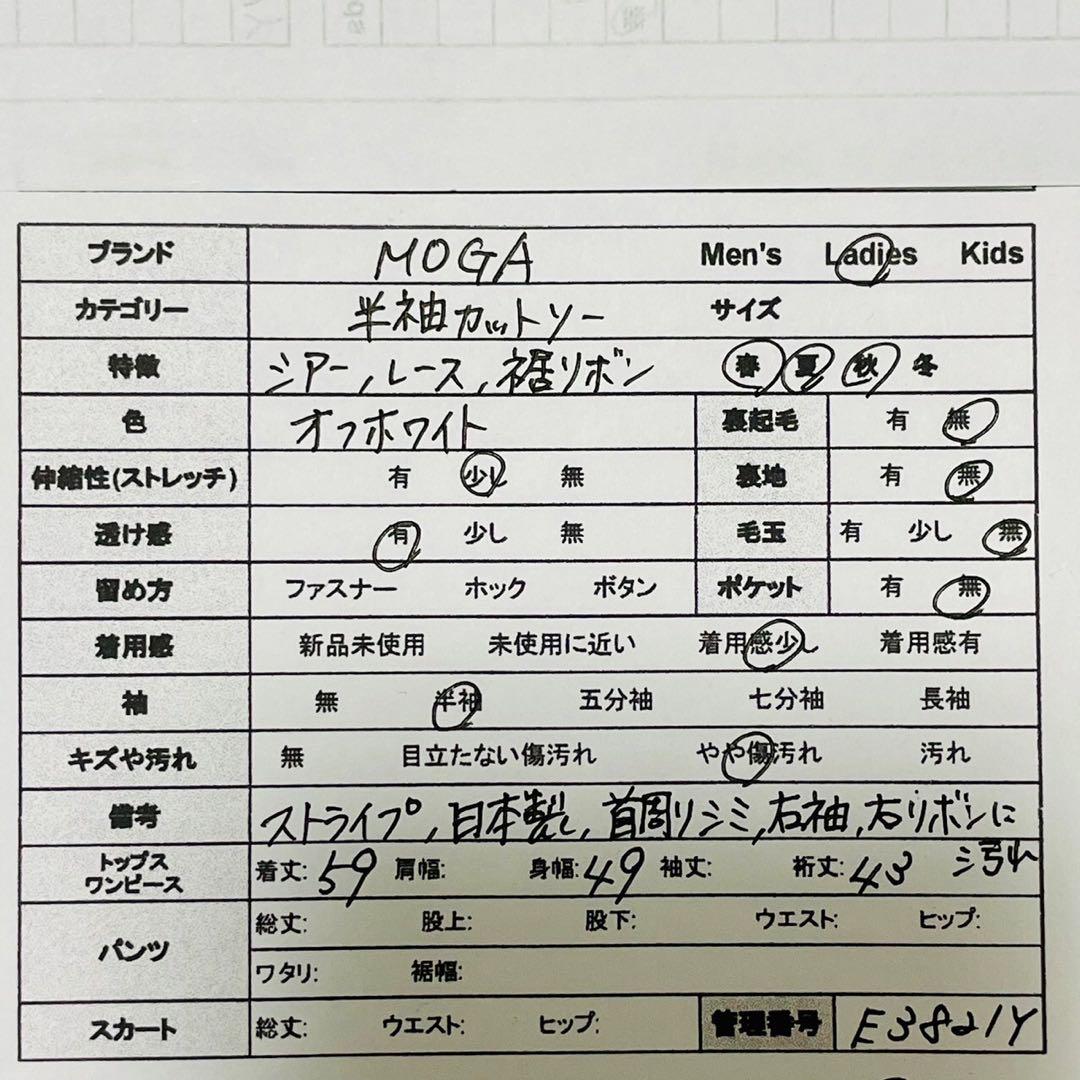 ブランド MOGA Men's Ladies Kids
カテゴリー 半袖カットソー サイズ
特徴 シアー,レース,裾リボン 春 夏 秋 冬
色 オフホワイト 裏起毛 有 無
伸縮性(ストレッチ) 有 少し 無 裏地 有 無
透け感 有 少し 無 毛玉 有 少し 無
留め方 ファスナー ホック ボタン ポケット 有 無
着用感 新品未使用 未使用に近い 着用感少し 着用感有
袖 無 半袖 五分袖 七分袖 長袖
キズや汚れ 無 目立たない傷汚れ やや傷汚れ 汚れ
備考 ストライプ,日本製,首周りシミ,右袖,右リボンに
汚れ
トップス
ワンピース 着丈: 59 肩幅: 身幅: 49 袖丈: 裄丈: 43
パンツ 総丈: 股上: 股下: ウエスト: ヒップ:
ワタリ: 裾幅:
スカート 総丈: ウエスト: ヒップ: 管理番号 E3821Y